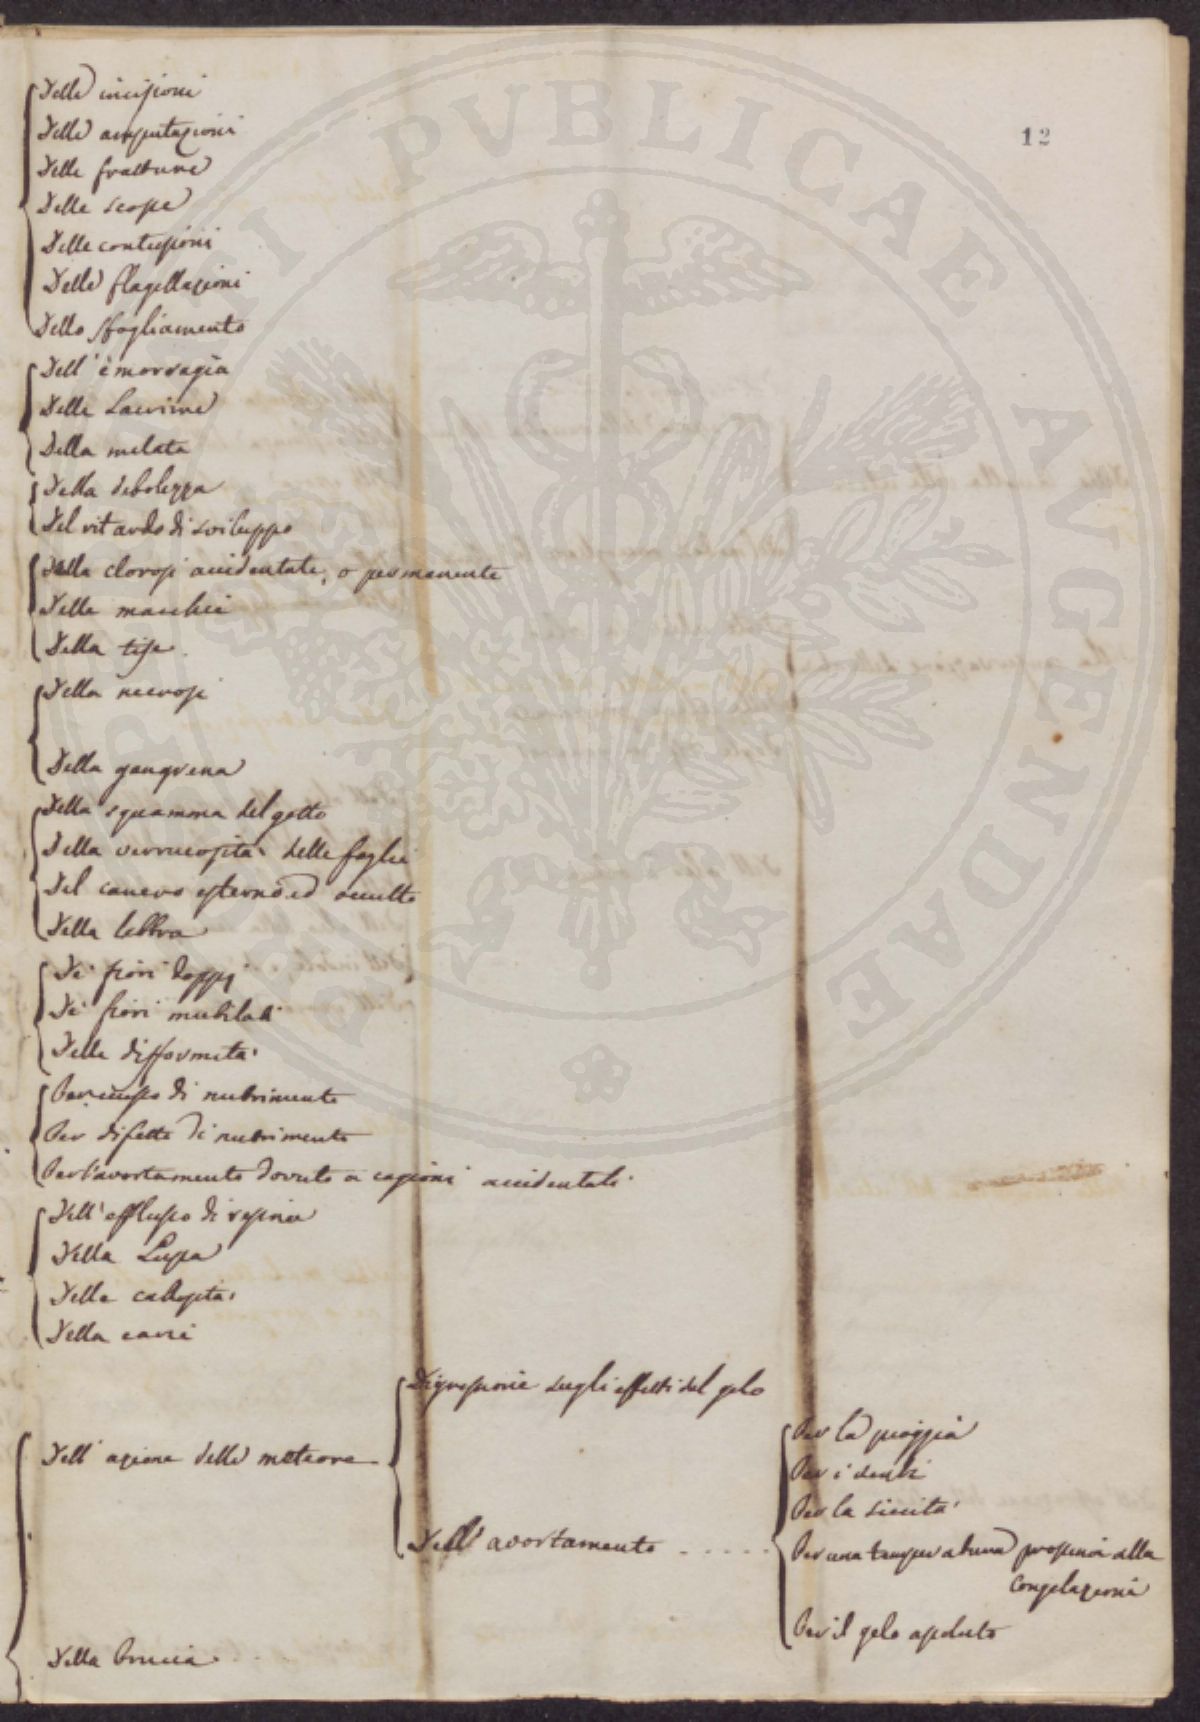 12
Delle incisioni
Delle amputazioni
Delle fratture
Delle scosse
Delle contusioni
Delle flagellazioni
Dello sfogliamento
Dell'emorragia
Delle Lacrime
Della melata
Della debolezza
Del ritardo di sviluppo
Della clorosi accidentale, o permanente
Delle macchie
Della tise
Della necrosi
Della gangrena
Della squamma del gatto
Della verrucosità delle foglie
Del cancro esterno ed occulto
Della lebbra
De' fiori doppj
De' fiori mutilati
Delle difformità
Per eccesso di nutrimento
Per difetto di nutrimento
Per l'avortamento dovuto a cagioni accidentali
Dell'efflusso di resina
Della Lupa
Delle callosità
Della carie
Digressione sugli effetti del gelo
Dell'azione delle meteore
Dell'avortamento . . . . .
Per la pioggia
Per i venti
Per la siccità
Per una temperatura prossima alla
congelazione
Per il gelo assoluto
Della Brucia
PVBLICAE AVGENDAE